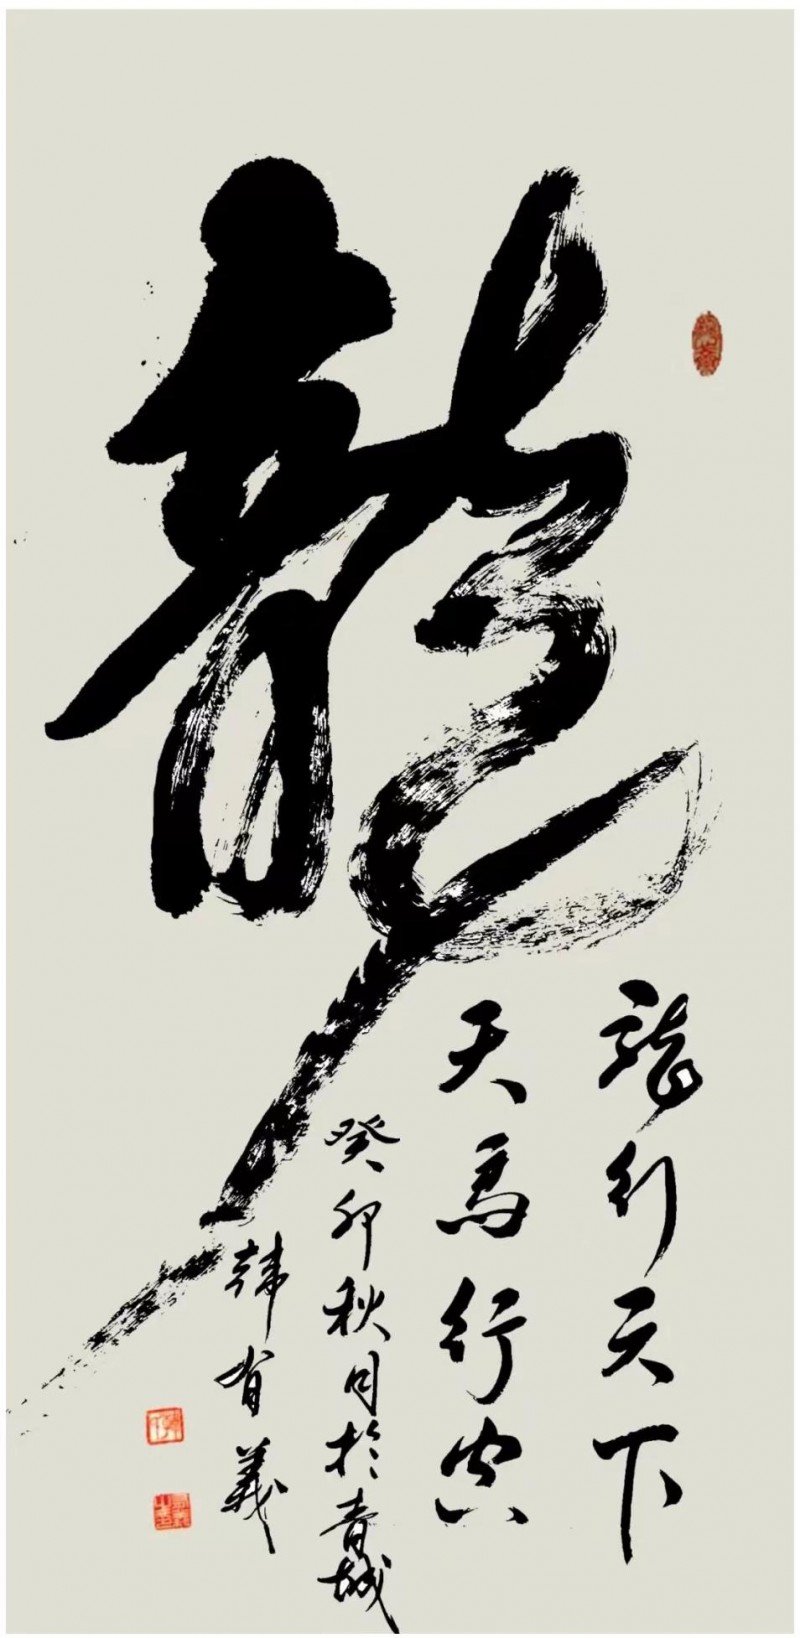 龍
龍行天下
天馬行空
癸卯秋月於青城
韩省義